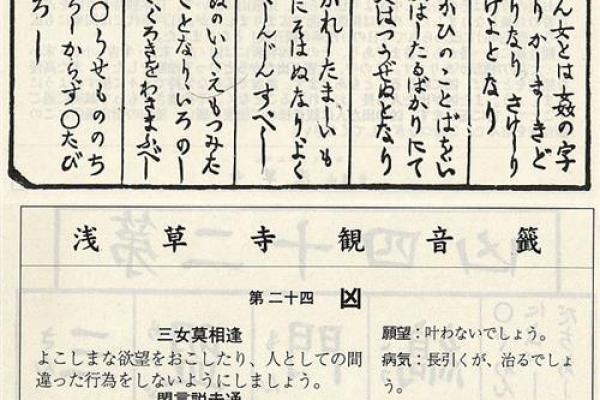 ん女とは姦の字
りかしましきど
りなり さけしり
けよとなり
かひのことばをい
ばしたるばかりにて
はつうぜぬとなり
がれしたましいも
にそはぬなりよく
しんじんすべし
ぬのいくえもつみた
ことなりいろの
くろきをわきまふべし
〇うせもののち
ろしからず〇たび
ろし
浅草寺観音籤
第二十四 凶
三女莫相逢
よこしまな欲望をおこしたり、人としての間
違った行為をしないようにしましょう。
盟言説未通
願望：叶わないでしょう。
病気：長引くが、治るでしょ
う。